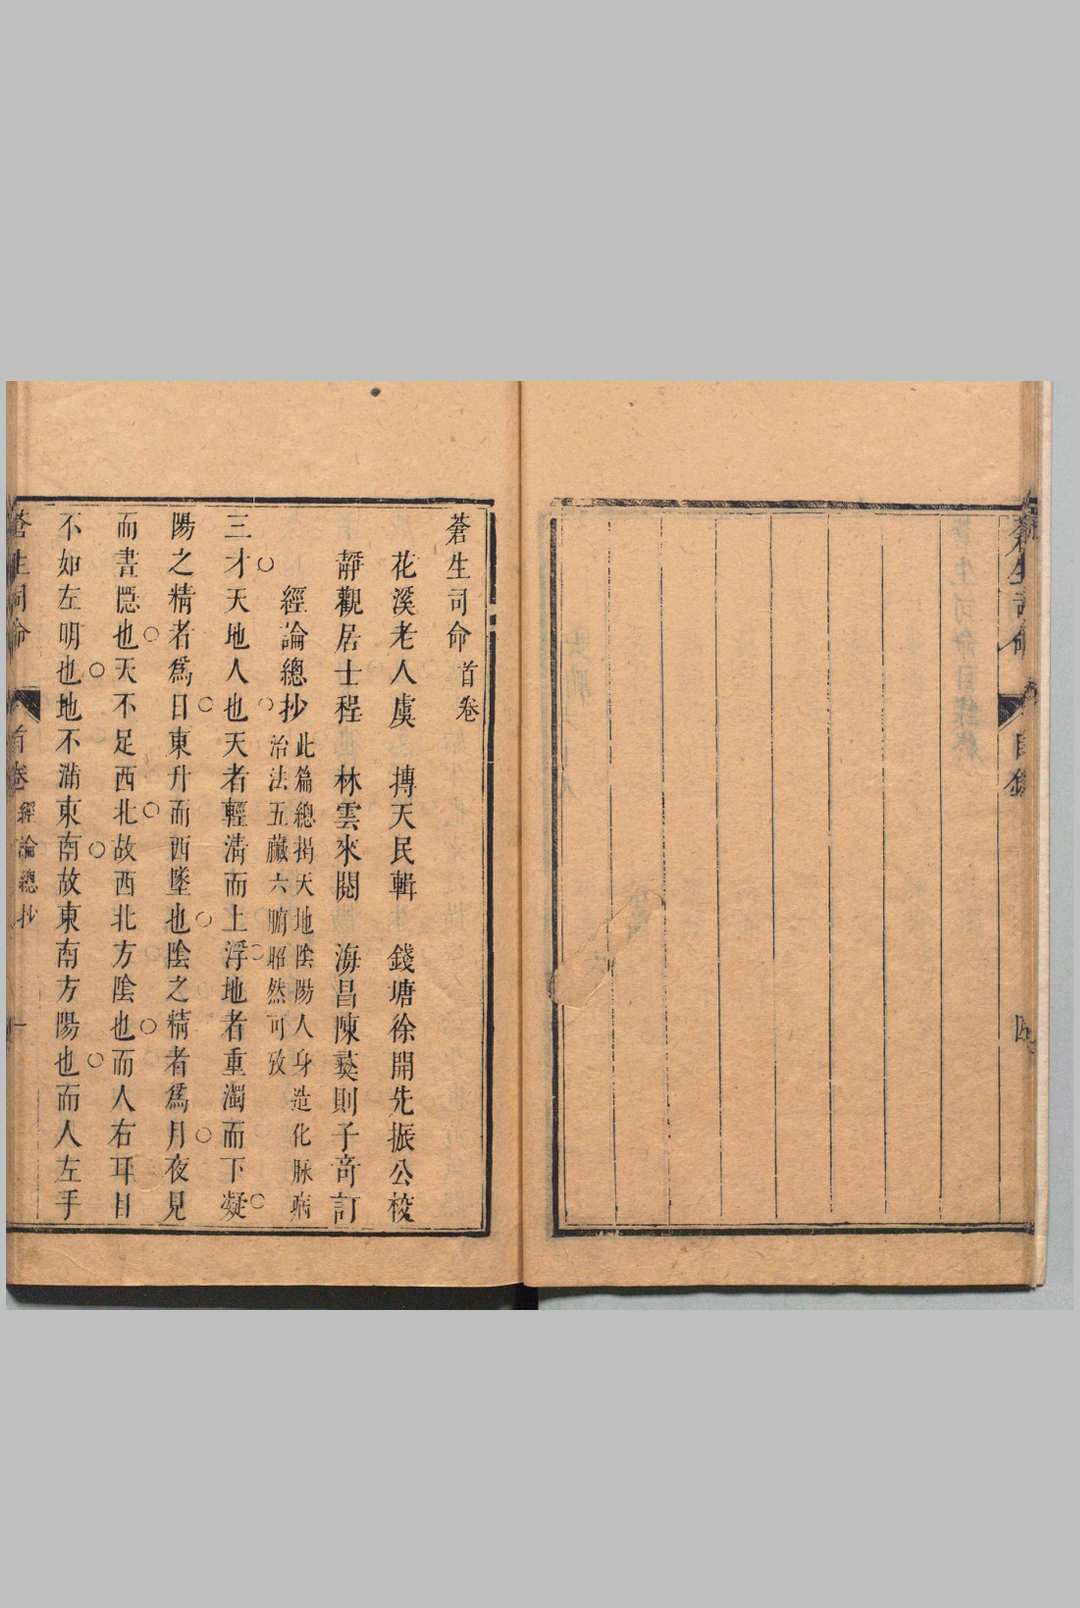 蒼生司命
目錄
蒼生司命首卷
花溪老人虞　摶天民輯　錢塘徐開先振公校
靜觀居士程　林雲來閱　海昌陳䕫則子奇訂
經論總抄
此篇總揭天地陰陽人身造化脉病
治法五臟六腑昭然可攷
三才天地人也天者輕清而上浮地者重濁而下凝
陽之精者爲日東升而西墜也陰之精者爲月夜見
而晝隱也天不足西北故西北方陰也而人右耳目
不如左明也地不滿東南故東南方陽也而人左手
蒼生司命　首卷　經論總抄　一